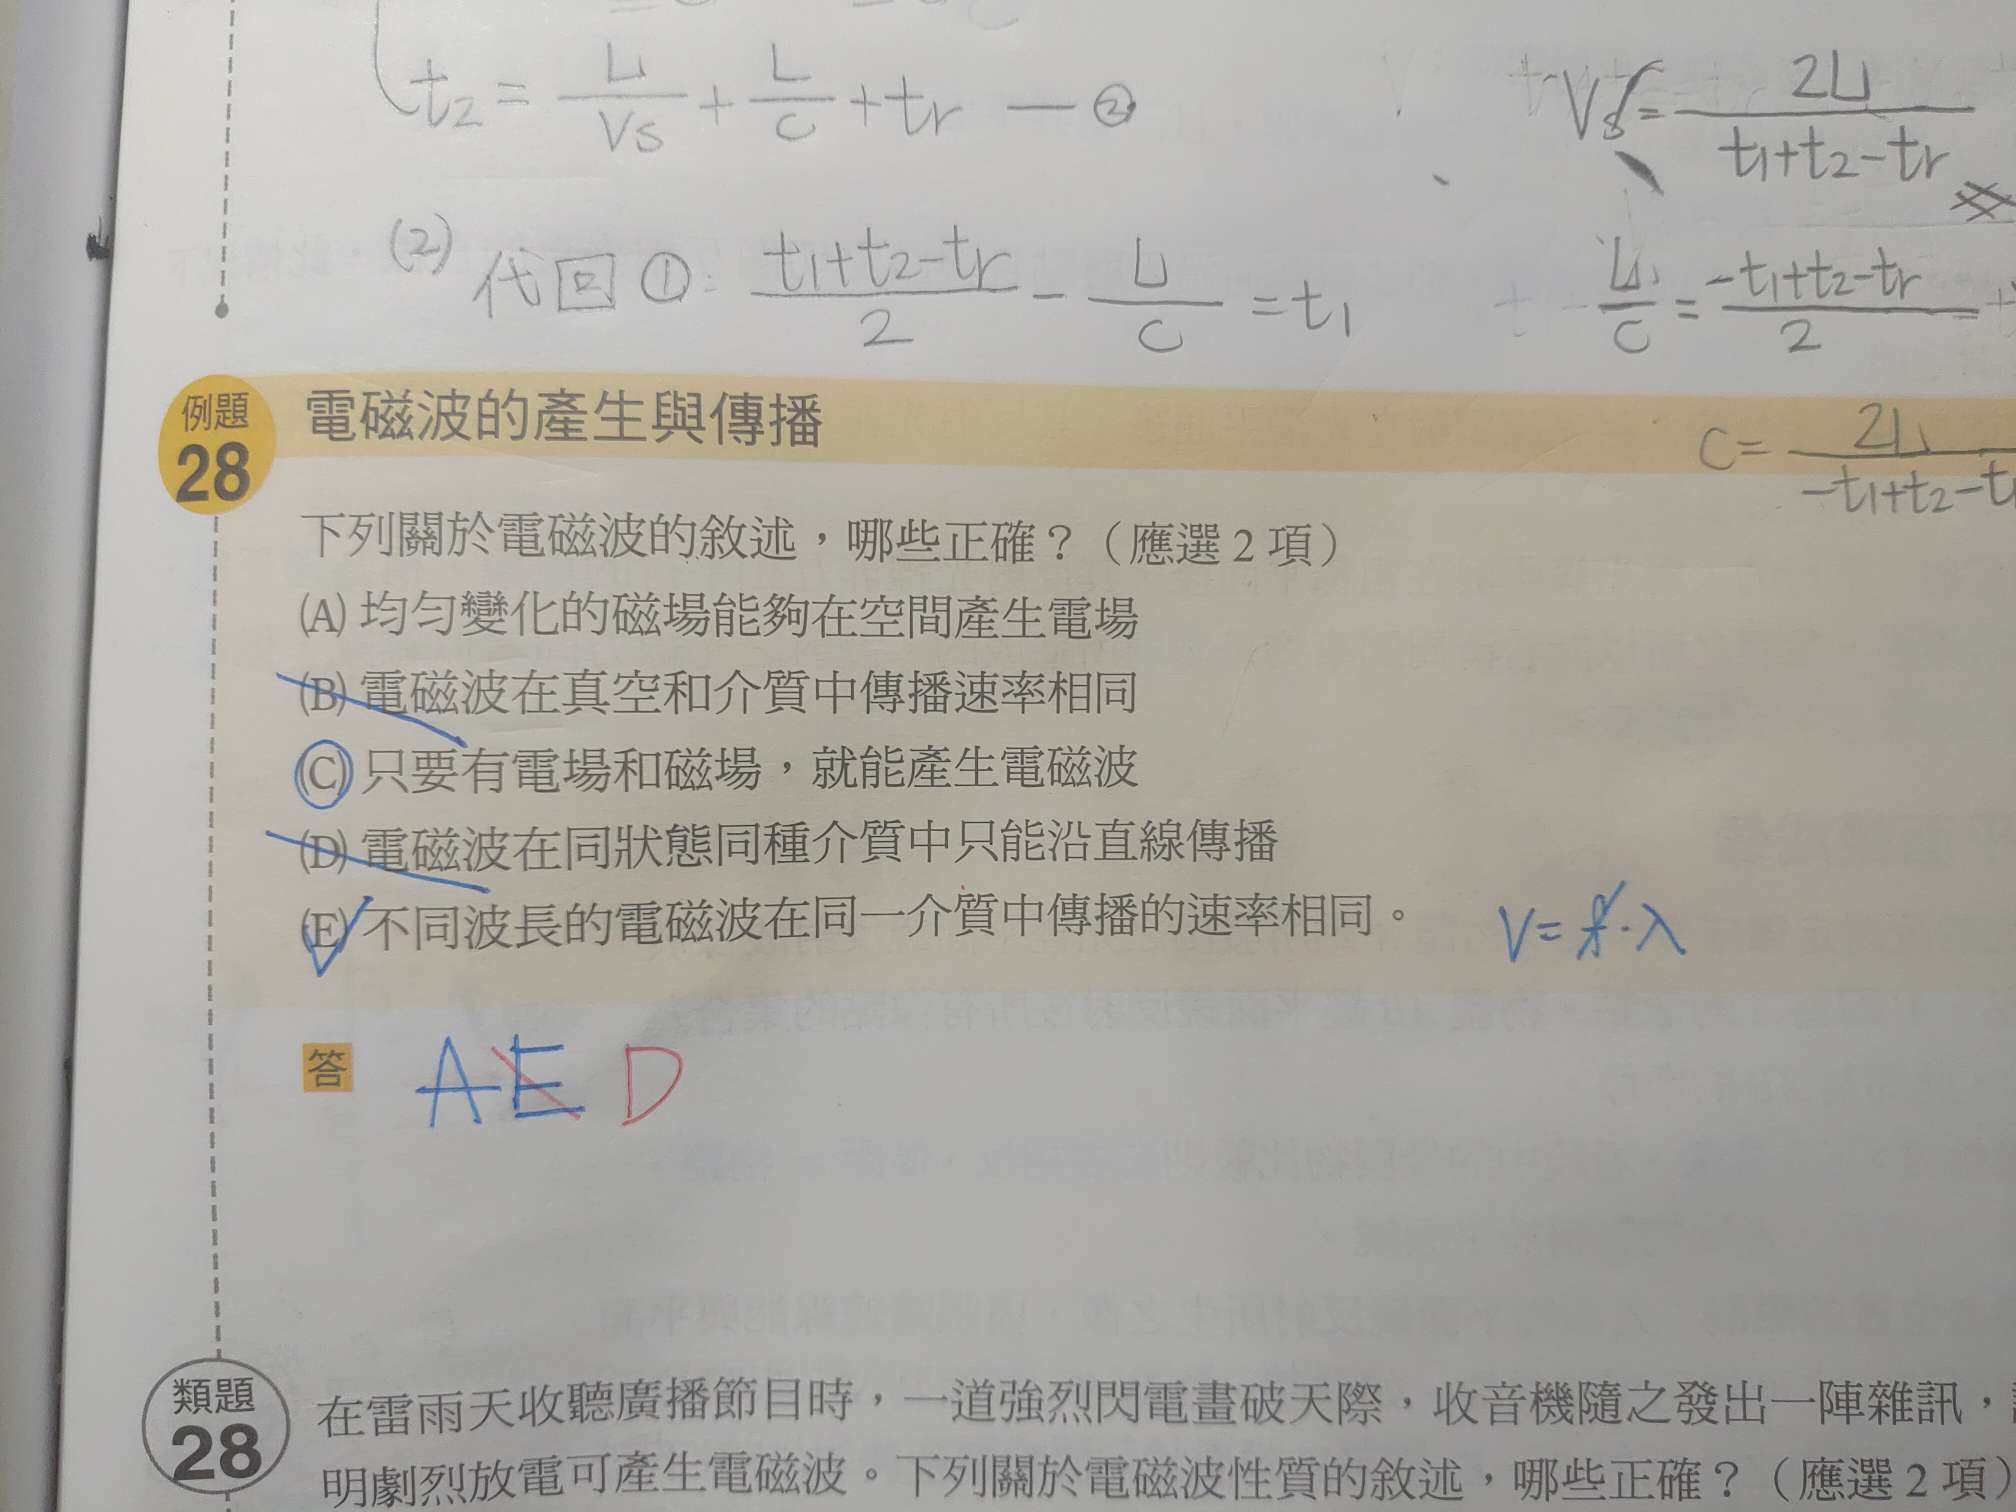 t2 = L/Vs + L/c + tr — ②
Vs = 2L/t1+t2-tr
(2) 代回①: t1+t2-tr/2 - L/c = t1
L/c = -t1+t2-tr/2
例題 28 電磁波的產生與傳播
C = 2L/-t1+t2-t
下列關於電磁波的敘述，哪些正確？（應選 2 項）
(A) 均勻變化的磁場能夠在空間產生電場
(B) 電磁波在真空和介質中傳播速率相同
(C) 只要有電場和磁場，就能產生電磁波
(D) 電磁波在同狀態同種介質中只能沿直線傳播
(E) 不同波長的電磁波在同一介質中傳播的速率相同。
V=f·λ
答 A E D
類題 28 在雷雨天收聽廣播節目時，一道強烈閃電畫破天際，收音機隨之發出一陣雜訊，
明劇烈放電可產生電磁波。下列關於電磁波性質的敘述，哪些正確？（應選 2 項）